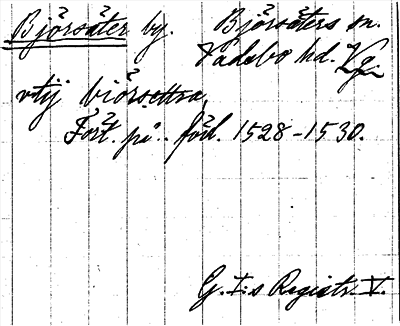 Björsäter by. Björsäters sn.
Vadsbo hd. Vg.
vtij biörsettra,
Fört. på förl. 1528-1530.
G. I:s Registr. V.